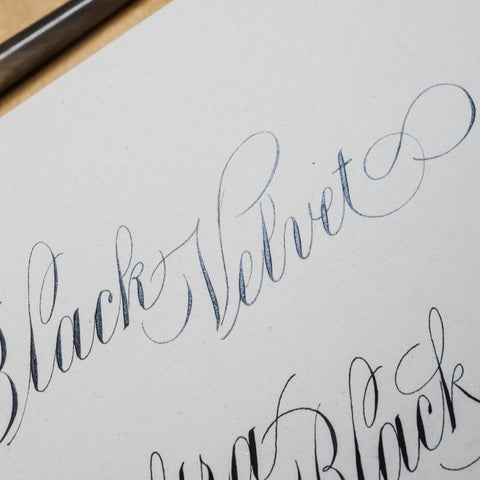 Black Velvet
Black